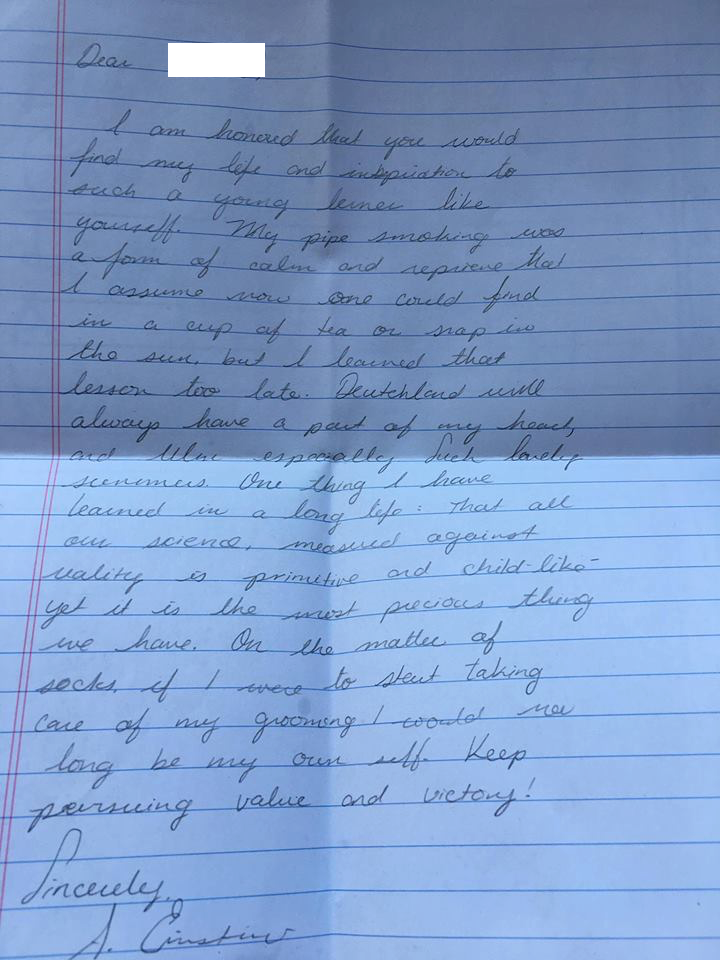 Dear
I am honored that you would
find my life and inspiration to
such a young lerner like
yourself. My pipe smoking was
a form of calm and reprieve that
I assume now one could find
in a cup of tea or nap in
the sun, but I learned that
lesson too late. Deutchland will
always have a part of my heart,
and Ulm especially. Such lovely
summers. One thing I have
learned in a long life: that all
our science, measured against
reality is primitive and child-like-
yet it is the most precious thing
we have. On the matter of
socks, if I were to start taking
care of my grooming I would no
long be my own self. Keep
persuing value and victory!
Sincerely,
A. Einstein